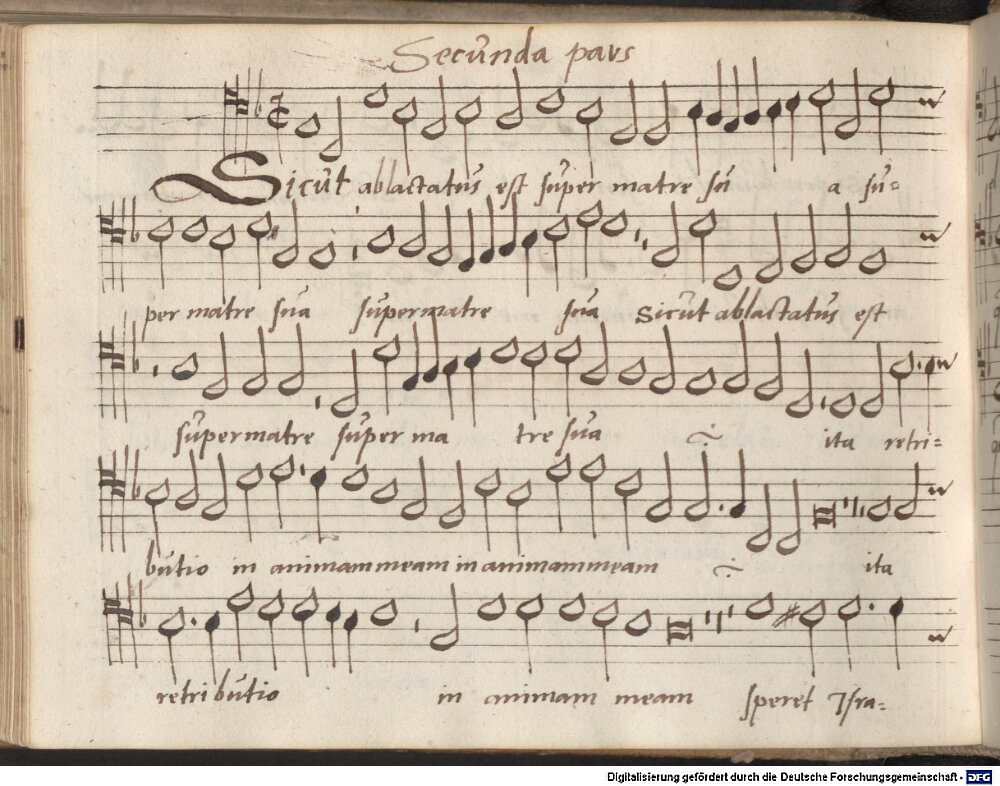 Secunda pars
Sicut ablactatus est super matre su a su=
per matre sua supermatre sua Sicut ablactatus est
supermatre super ma tre sua ita retri=
butio in animam meam in animam meam ita
retributio in animam meam speret Isra=
Digitalisierung gefördert durch die Deutsche Forschungsgemeinschaft - DFG